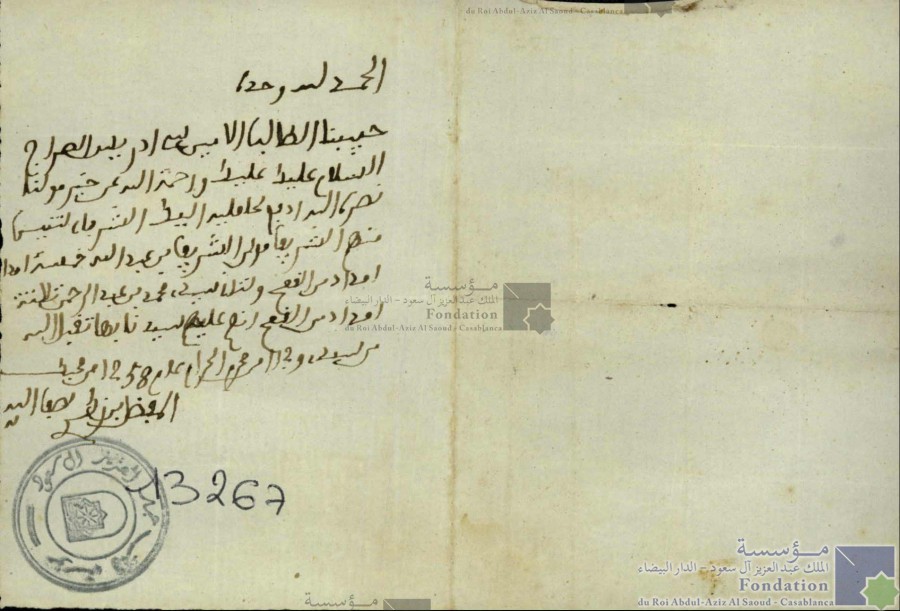 du Roi Abdul-Aziz Al Saoud - Casablanca
الحمد لله وحده
حبيبنا الطالب الامين سي ادريس السراج
السلام عليك ورحمة الله عن خير مولانا
نصره الله ادفع لحامليه اليك الشرفاء
منهم الشريف مولاي الشريف بن عبد الله خمسة امداد
امداد من القمح ولثاني سيدي محمد بن عبد الرحمن ثلاثة
امداد من القمح انعم عليهم سيدنا بها تقبل الله
من سيدنا وفي 12 من محرم الحرام عام 1258 من محبك
المفضل لطف الله به
مؤسسة
الملك عبد العزيز آل سعود - الدار البيضاء
Fondation
du Roi Abdul-Aziz Al Saoud - Casablanca
عبد العزيز ال سعود
13267
مؤسسة
الملك عبد العزيز آل سعود - الدار البيضاء
Fondation
du Roi Abdul-Aziz Al Saoud - Casablanca
مؤسسة